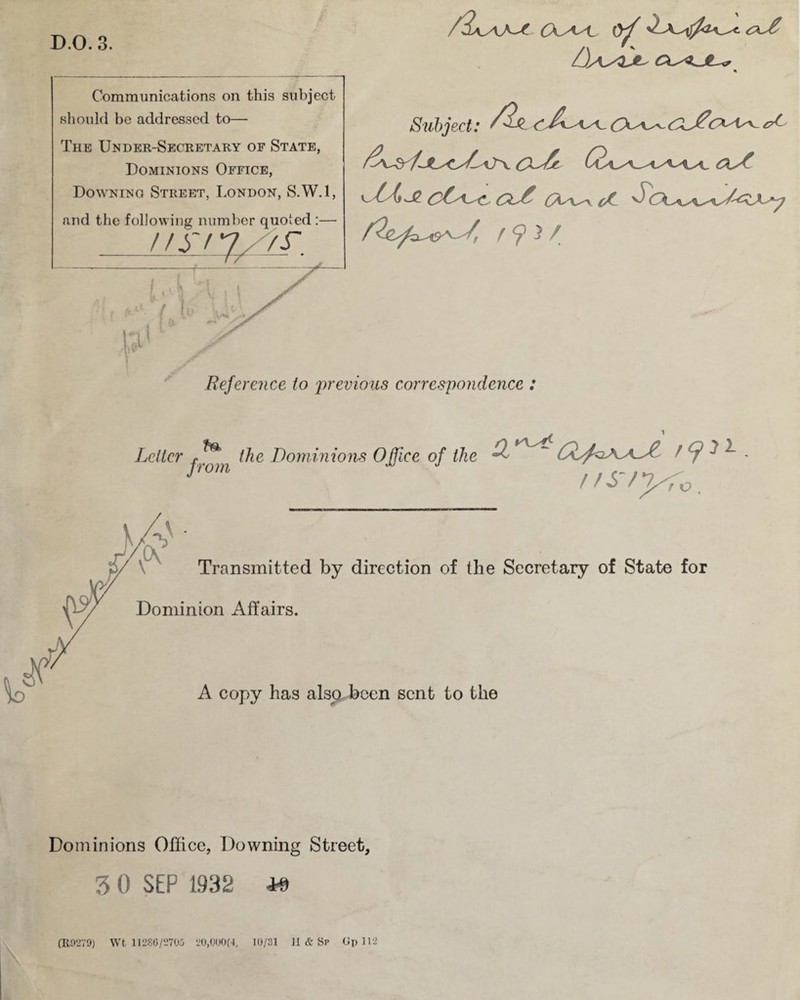 D.O. 3.
Bureau of Tropical
Diseases.
Communications on this subject
should be addressed to—
THE UNDER-SECRETARY OF STATE,
DOMINIONS OFFICE,
DOWNING STREET, LONDON, S.W.1,
and the following number quoted:—
11517/15.
Subject: Bechuanaland
Protectorate Annual
Medical and Sanitary
Report, 1931.
Reference to previous correspondence :
Letter to from the Dominions Office of the 2nd April 1932.
11517/10.
Transmitted by direction of the Secretary of State for
Dominion Affairs.
A copy has also been sent to the
Dominions Office, Downing Street,
30 SEP 1932 19
(R9279) Wt 11286/2705 20,000(4. 10/31 H & SP Gp 112